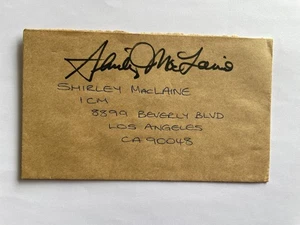 Shirley MacLaine
SHIRLEY MACLAINE
ICM
8899 BEVERLY BLVD
LOS ANGELES
CA 90048